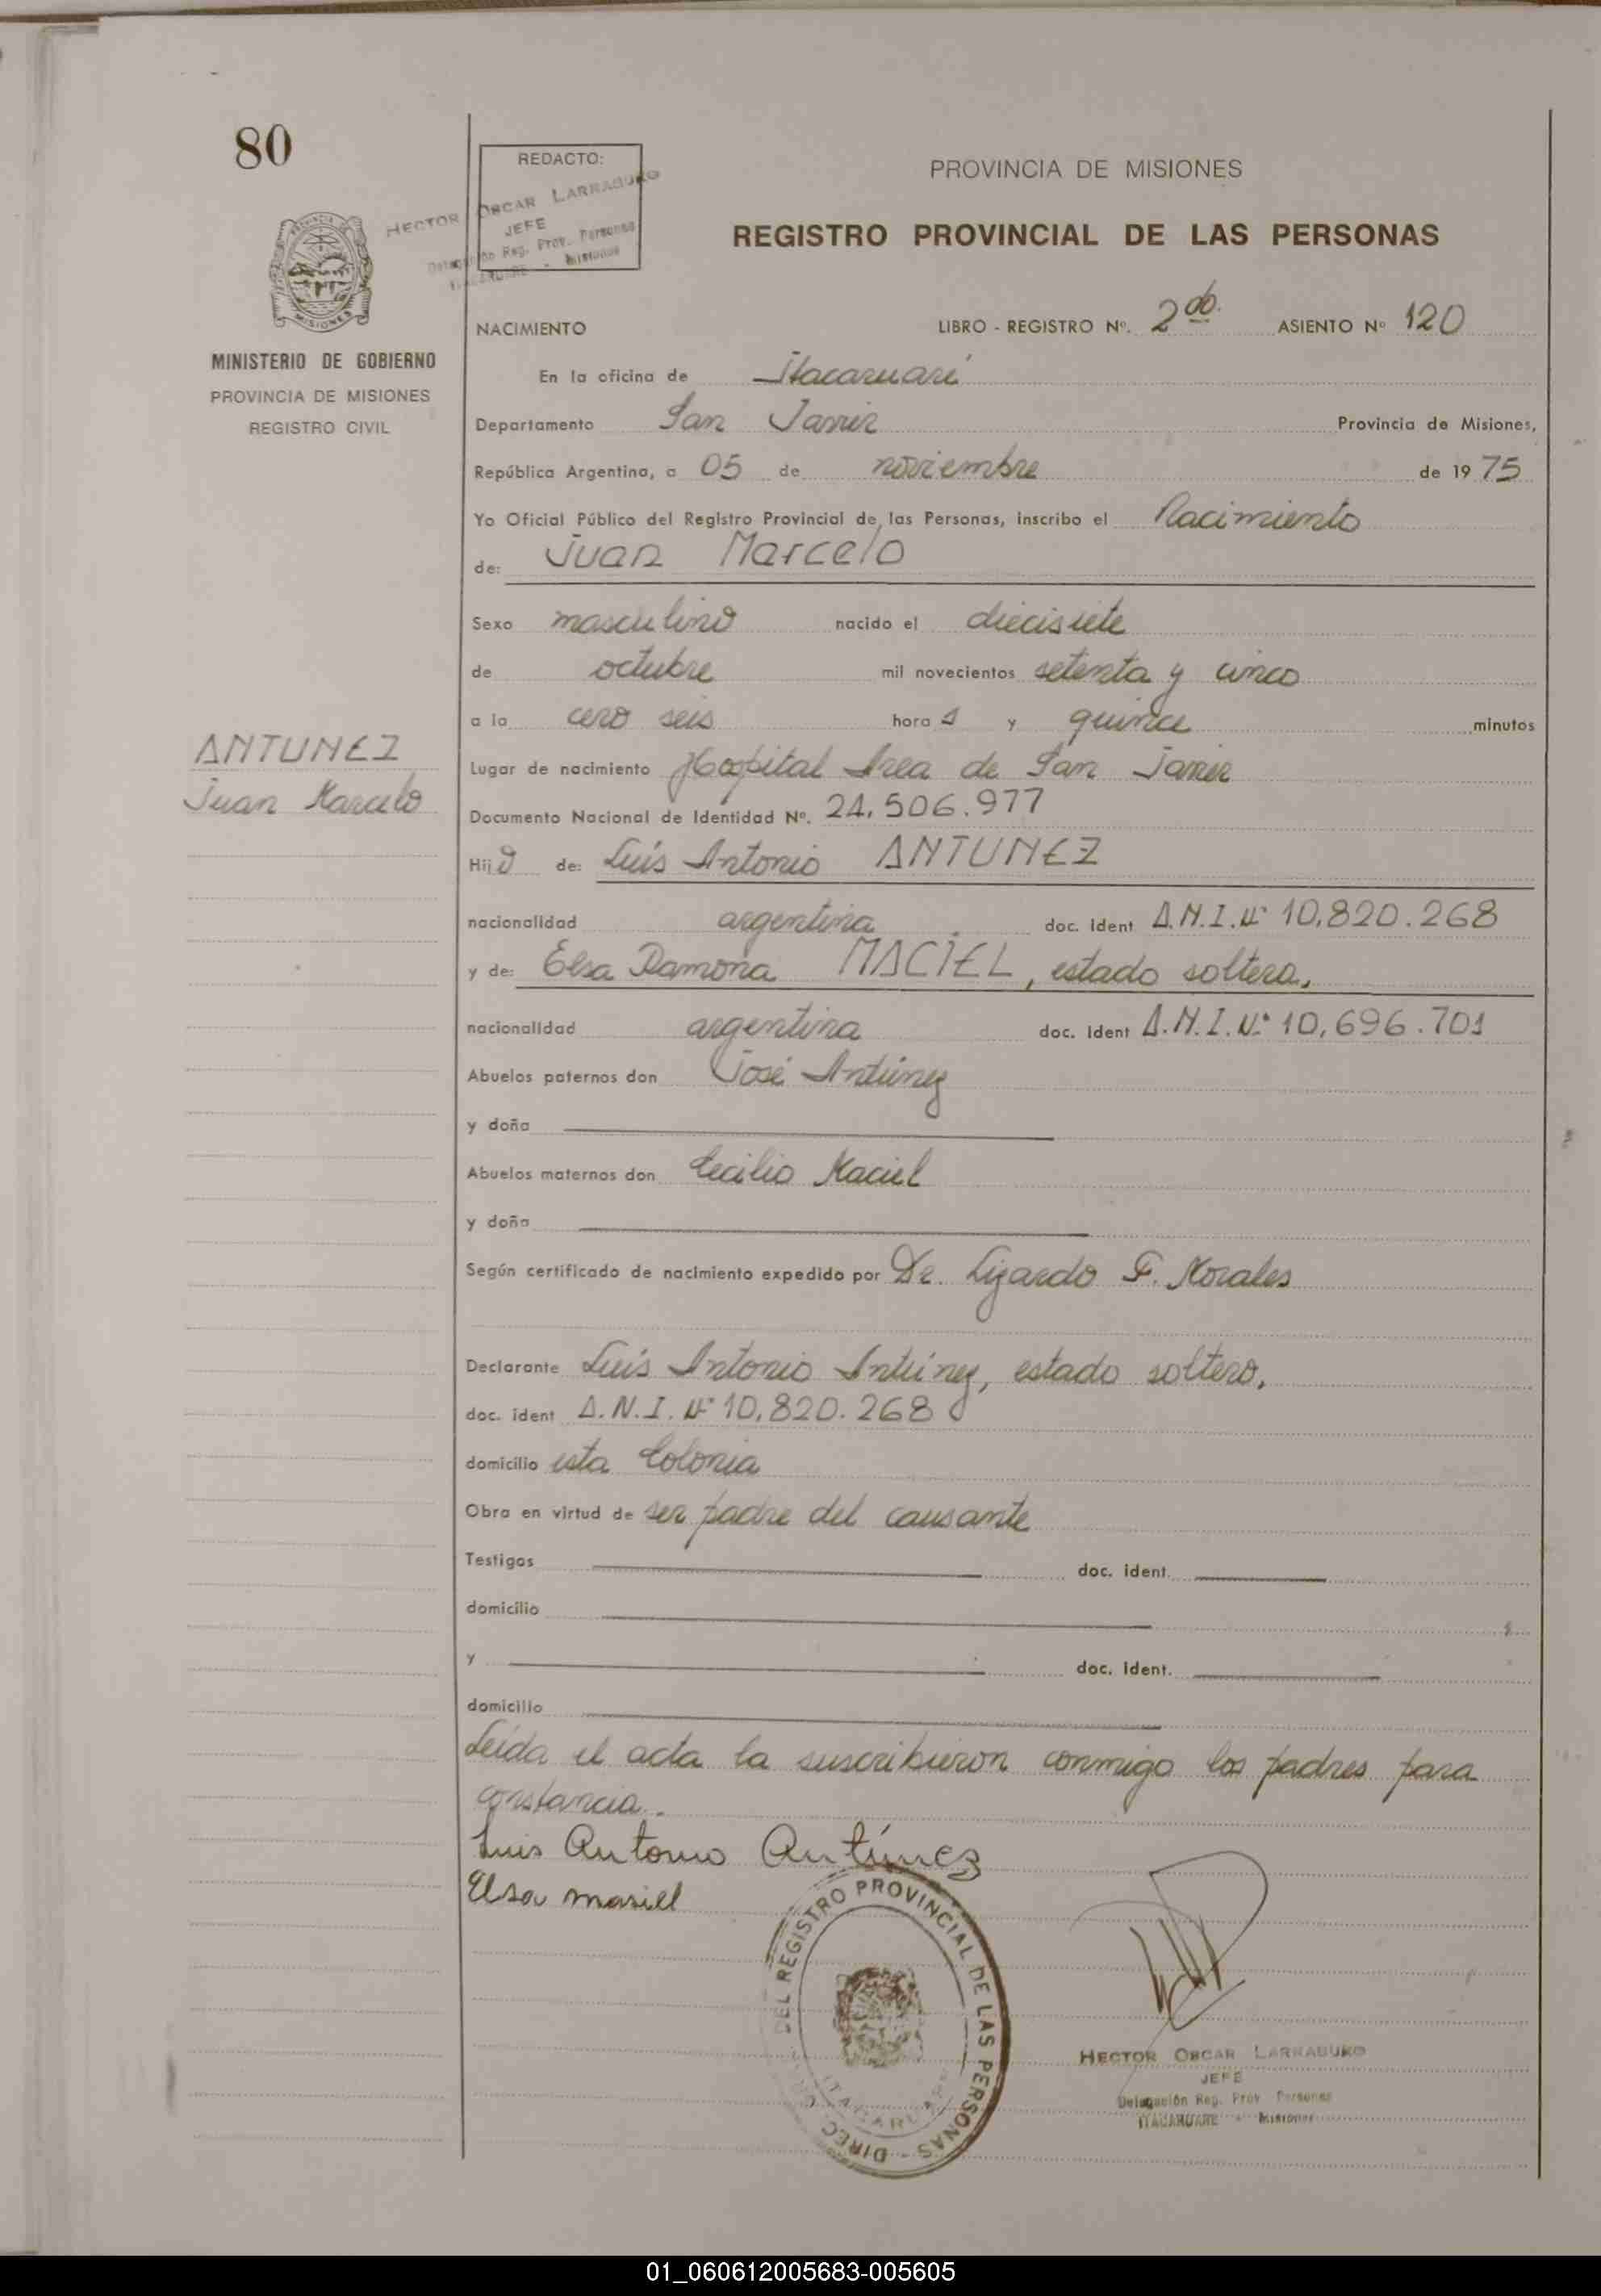 80
REDACTO:
HECTOR OSCAR LARRABURO
JEFE
Delegación Reg. Prov. Personas
ITACARUARE - Misiones
PROVINCIA DE MISIONES
REGISTRO PROVINCIAL DE LAS PERSONAS
MISIONES
MINISTERIO DE GOBIERNO
PROVINCIA DE MISIONES
REGISTRO CIVIL
NACIMIENTO LIBRO - REGISTRO Nº. 2do. ASIENTO Nº 120
En la oficina de Itacaruaré
Departamento San Javier Provincia de Misiones,
República Argentina, a 05 de noviembre de 1975
Yo Oficial Público del Registro Provincial de las Personas, inscribo el Nacimiento
de: Juan Marcelo
Sexo masculino nacido el diecisiete
de octubre mil novecientos setenta y cinco
a la cero seis hora s y quince minutos
ANTUNEZ
Juan Marcelo
Lugar de nacimiento Hospital Area de San Javier
Documento Nacional de Identidad Nº. 24.506.977
Hijo de: Luis Antonio ANTUNEZ
nacionalidad argentina doc. Ident D.N.I. Nº 10.820.268
y de: Elsa Ramona MACIEL, estado soltera,
nacionalidad argentina doc. Ident D.N.I. N.º 10.696.701
Abuelos paternos don José Antúnez
y doña
Abuelos maternos don Cecilio Maciel
y doña
Según certificado de nacimiento expedido por Dr. Lizardo F. Morales
Declarante Luis Antonio Antúnez, estado soltero,
doc. ident D.N.I. Nº 10.820.268
domicilio esta Colonia
Obra en virtud de ser padre del causante
Testigos doc. ident.
domicilio
y doc. ident.
domicilio
Leída el acta la suscribieron conmigo los padres para
constancia.
Luis Antonio Antúnez
Elsa masiel
DEL REGISTRO PROVINCIAL DE LAS PERSONAS - DIREC
ITACARUARE
HECTOR OSCAR LARRABURO
JEFE
Delegación Reg. Prov. Personas
ITACARUARE - Misiones
01_060612005683-005605